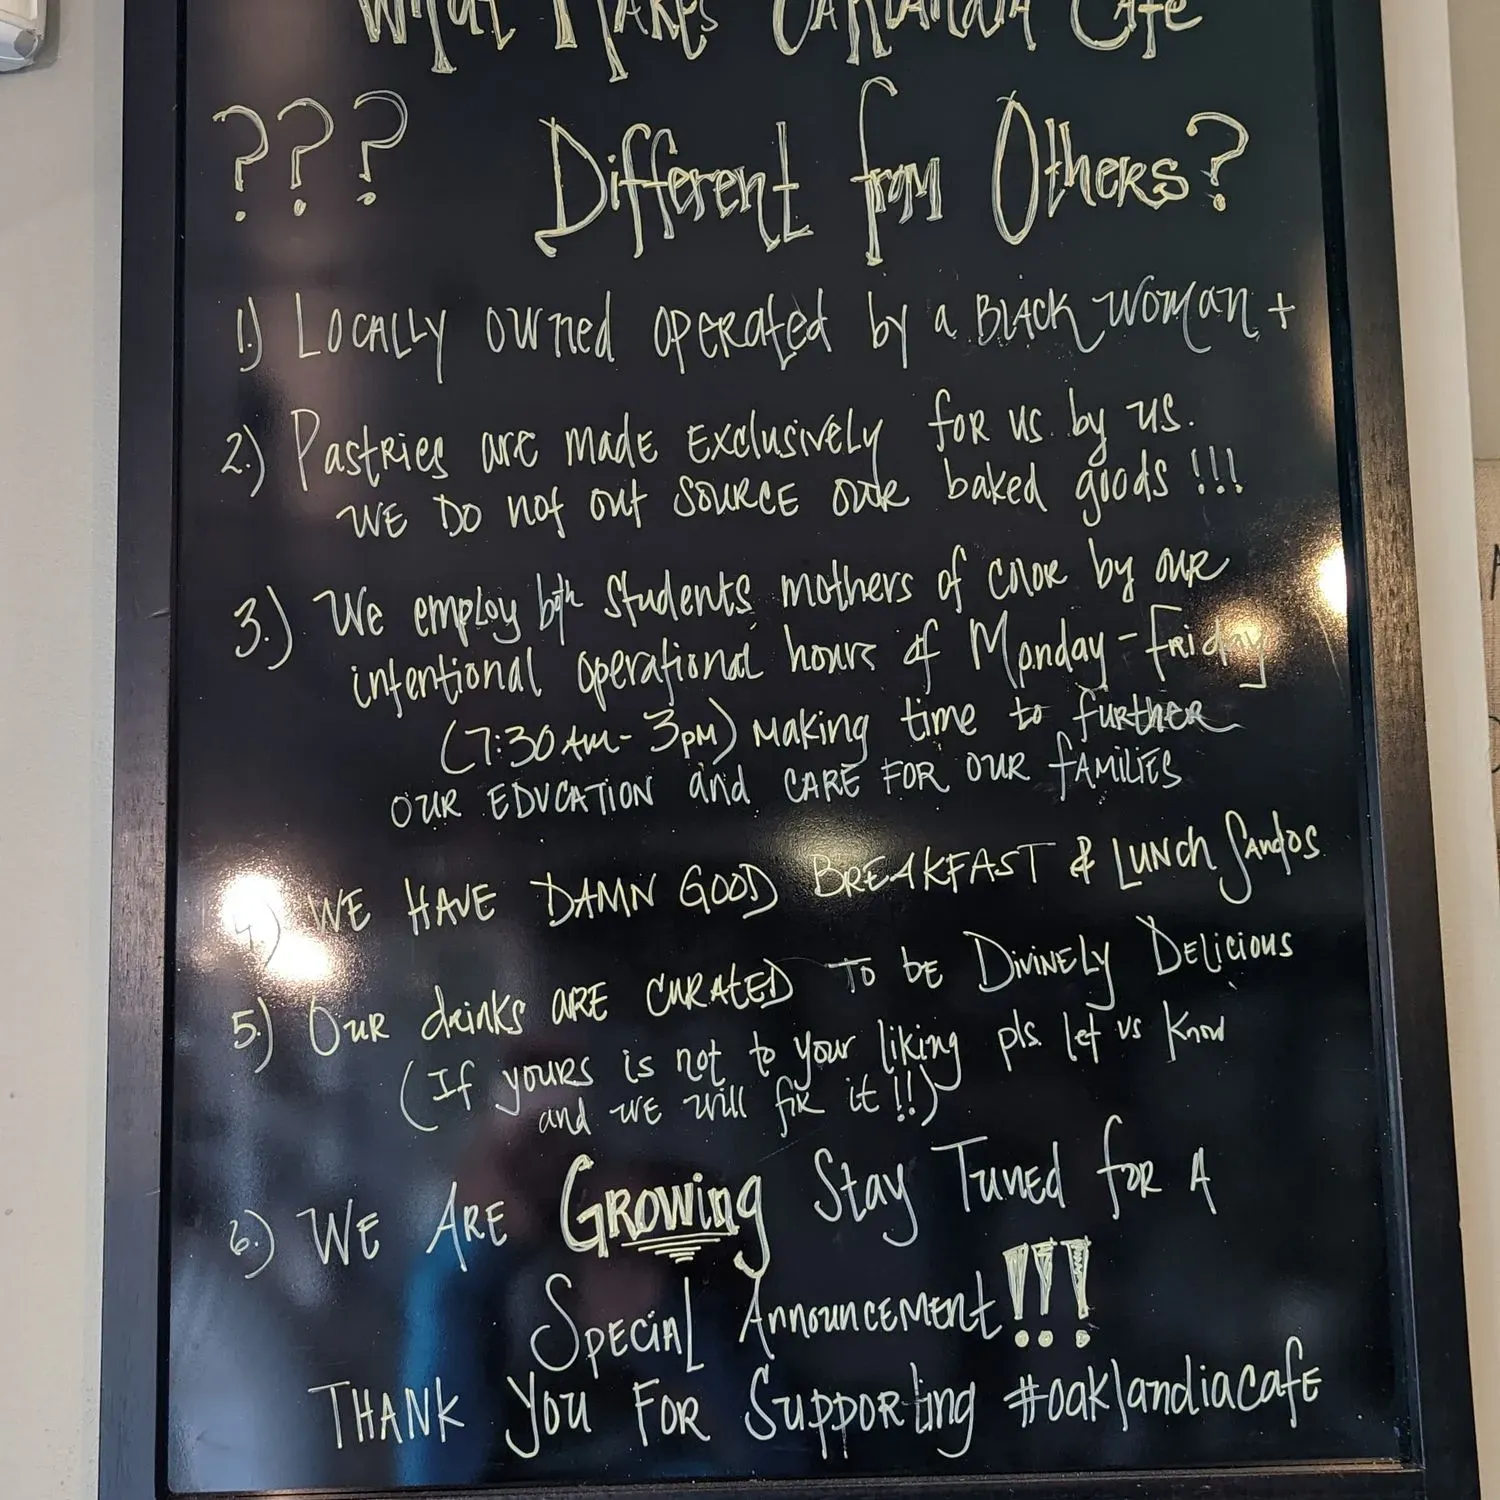 What Makes Oaklandia Cafe
??? Different from Others?
1.) Locally owned operated by a Black woman +
2.) Pastries are made exclusively for us by us.
We do not out source our baked goods !!!
3.) We employ both students mothers of color by our
intentional operational hours of Monday-Friday
(7:30am-3pm) making time to further
our education and care for our families
4.) We have damn good breakfast & lunch sandos
5.) Our drinks are curated to be Divinely Delicious
(If yours is not to your liking pls. let us know
and we will fix it!!)
6.) We are Growing Stay Tuned for a
Special Announcement!!!
Thank you for supporting #oaklandiacafe